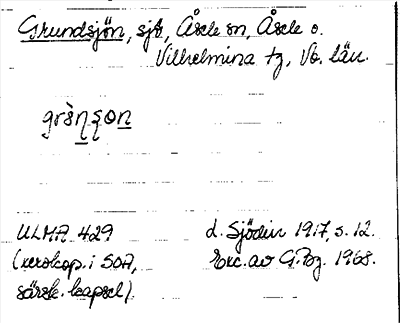 Grundsjön, sjö, Åsele sn, Åsele o.
Vilhelmina tg, Vb. län.
grɜ̀n̠ʂon̠
ULMA 429
(xerokop. i SOA,
särsk. kapsel)
d. Sjödin 1917, s. 12.
Exc. av G.Pg. 1968.